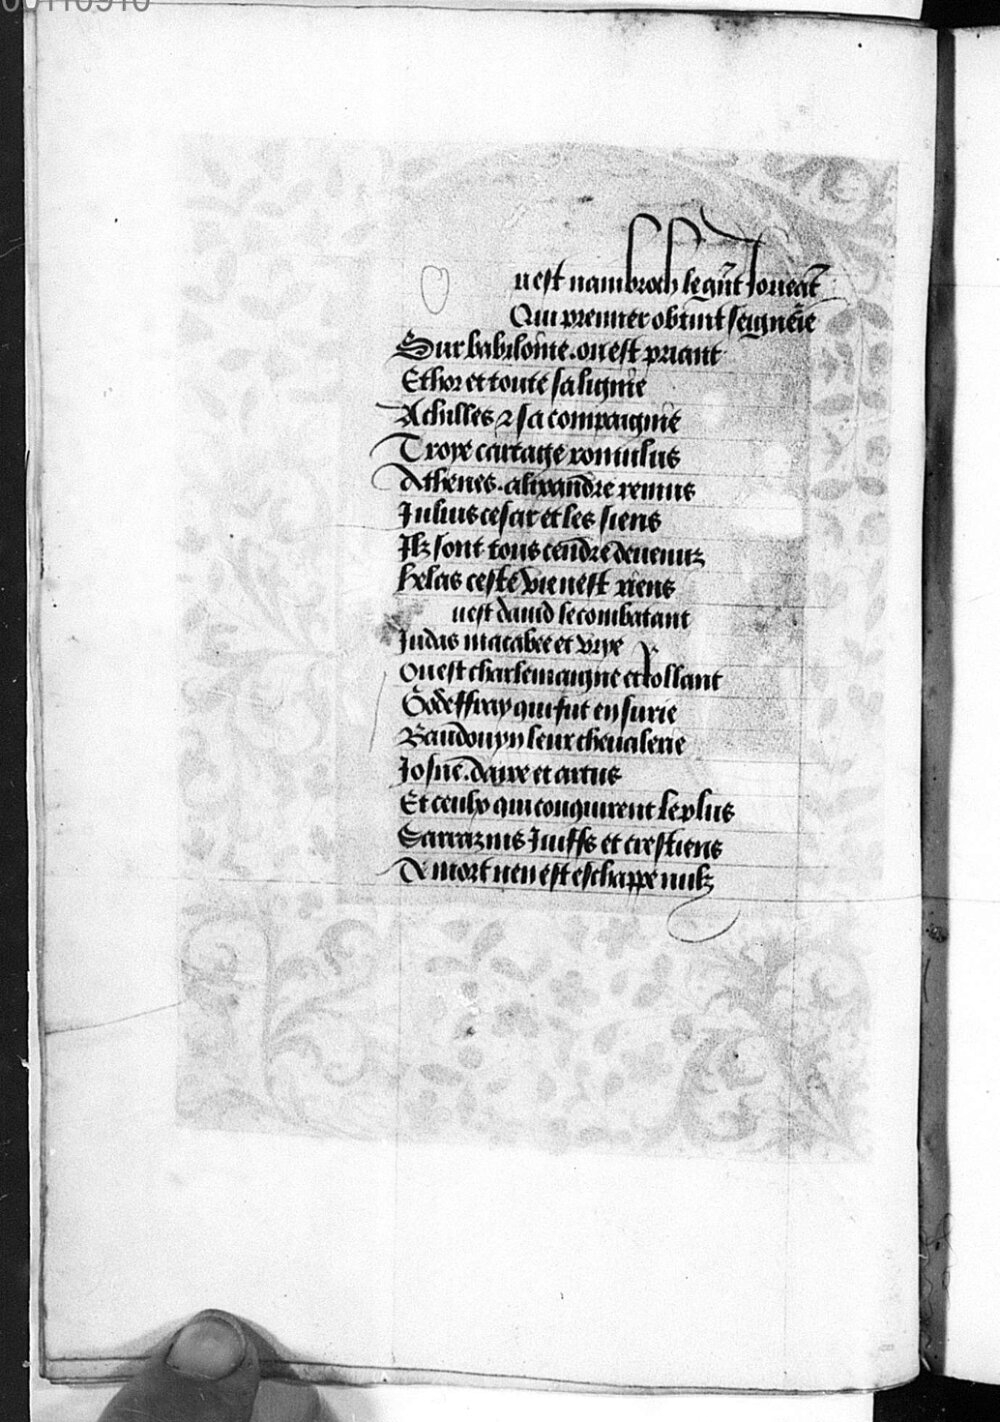 00110910
uest nambroth le gñt Joueāt
Qui premier obtint seignēie
Sur babiloine. ou est priant
Ethor et toute sa lignie
Achilles & sa compaignie
Troye cartage romulus
Athenes. alixandre remus
Julius cesar et les siens
Ilz sont tous cendre deuenuz
helas ceste vie nest riens
uest dauid le combatant
Judas macabee et vrye
Ou est charlemaigne et rollant
Godeffroy qui fut en surie
Baudouyn leur cheualerie
Josue. daire et artus
Et ceulx qui conquirent le plus
Sarrazins Juiffs et crestiens
De mort nen est eschappe nulz